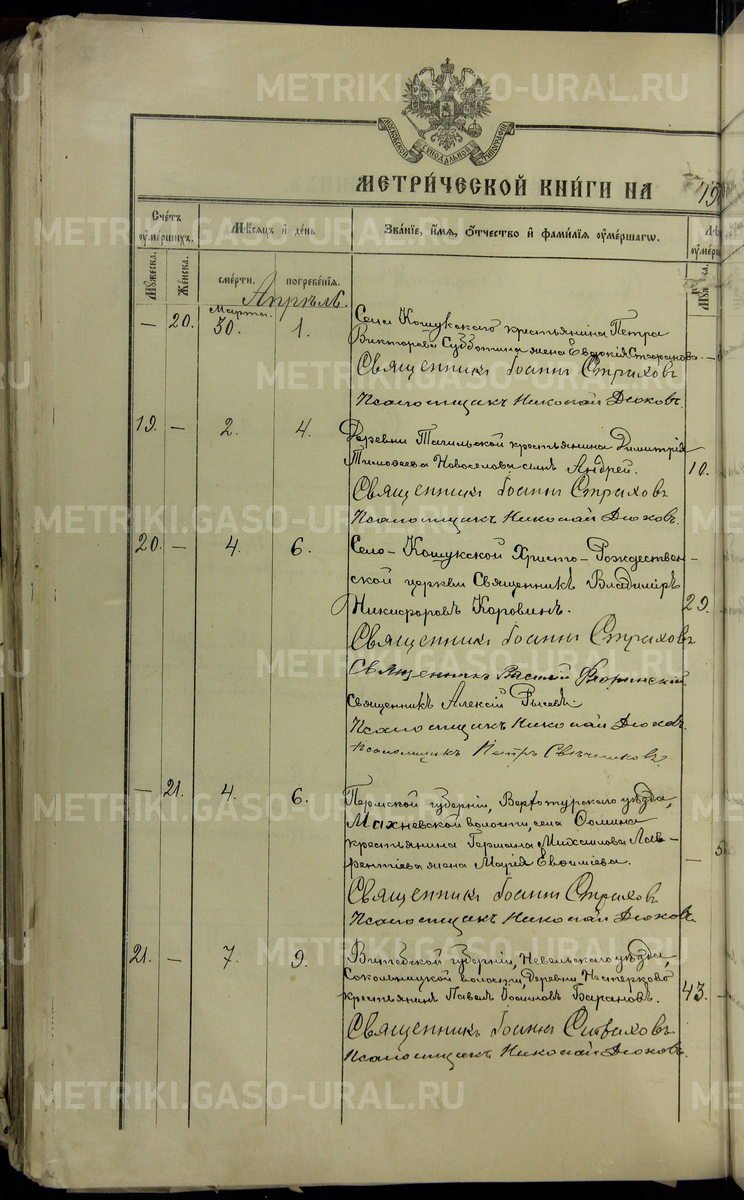 METRIKI.GASO-URAL.RU
МОСКОВСКОЙ СѴНОДАЛЬНОЙ ТИПОГРАФІИ
МЕТРИ́ЧЕСКОЙ КНИ́ГИ НА 19
Сче́тъ оуме́ршихъ.
Мѣ́сяцъ и҆ де́нь
Зва́ніе, и҆́мя, ѻ҆́тчество и҆ фами́лія оуме́ршагѡ.
Мꙋ́жеска.
Же́нска.
сме́рти.
погребе́нія.
Апрѣль.
Марта.
— 20. 30. 1. Села Кошукскаго крестьянина Петра
Викторова Субботина жена Евдокія Стефанова.
Священникъ Іоаннъ Страховъ
Псаломщикъ Николай Дюковъ.
19. — 2. 4. Деревни Тагильской крестьянина Димитрія
Тимофеева Новоселова сынъ Андрей. 10.
Священникъ Іоаннъ Страховъ
Псаломщикъ Николай Дюковъ.
20. — 4. 6. Село-Кошукской Христо-Рождествен-
ской церкви Священникъ Владиміръ
Никифоровъ Коровинъ. 29.
Священникъ Іоаннъ Страховъ
Священникъ Василій Флоринской
Священникъ Алексій
Псаломщикъ Николай Дюковъ.
Псаломщикъ Петръ Свѣчниковъ
— 21. 4. 6. Пермской губерніи, Верхотурскаго уѣзда,
Махневской волости, села Фомина
крестьянина Германа Михаилова Лав-
рентіева жена Марія Евфиміева. — 5
Священникъ Іоаннъ Страховъ
Псаломщикъ Николай Дюковъ.
21. — 7. 9. Витебской губерніи, Невельскаго уѣзда,
Сокольницкой волости, деревни Нестерково
крестьянинъ Павелъ Осиповъ Барановъ. 43. —
Священникъ Іоаннъ Страховъ
Псаломщикъ Николай Дюковъ.